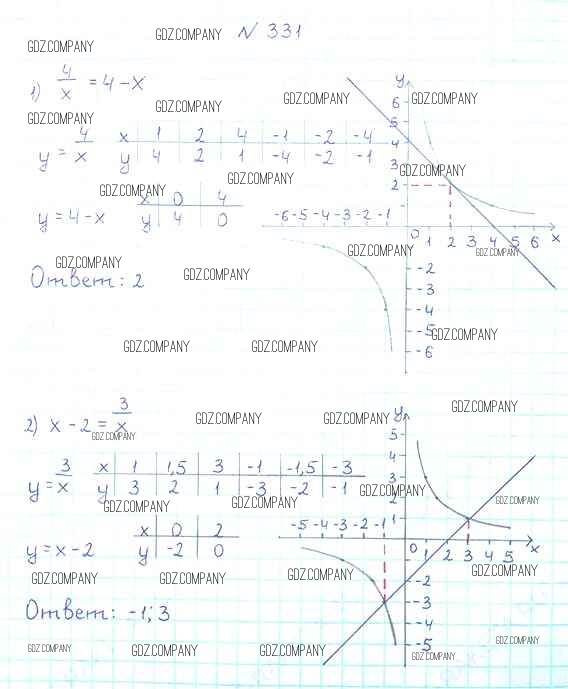 N 331
GDZ.COMPANY GDZ.COMPANY
1) 4/x = 4 - x
GDZ.COMPANY GDZ.COMPANY GDZ.COMPANY GDZ.COMPANY
y = 4/x
x 1 2 4 -1 -2 -4
y 4 2 1 -4 -2 -1
GDZ.COMPANY GDZ.COMPANY GDZ.COMPANY
y = 4 - x
x 0 4
y 4 0
y
6
5
4
3
2
-6 -5 -4 -3 -2 -1 0 1 2 3 4 5 6 x
-2
-3
-4
-5
-6
GDZ.COMPANY GDZ.COMPANY GDZ.COMPANY GDZ.COMPANY
Ответ: 2
GDZ.COMPANY GDZ.COMPANY GDZ.COMPANY
2) x - 2 = 3/x
GDZ.COMPANY GDZ.COMPANY GDZ.COMPANY GDZ.COMPANY
y = 3/x
x 1 1,5 3 -1 -1,5 -3
y 3 2 1 -3 -2 -1
GDZ.COMPANY GDZ.COMPANY GDZ.COMPANY GDZ.COMPANY
y = x - 2
x 0 2
y -2 0
y
5
4
3
2
1
-5 -4 -3 -2 -1 0 1 2 3 4 5 x
-2
-3
-4
-5
GDZ.COMPANY GDZ.COMPANY GDZ.COMPANY GDZ.COMPANY
Ответ: -1; 3
GDZ.COMPANY GDZ.COMPANY GDZ.COMPANY GDZ.COMPANY GDZ.COMPANY